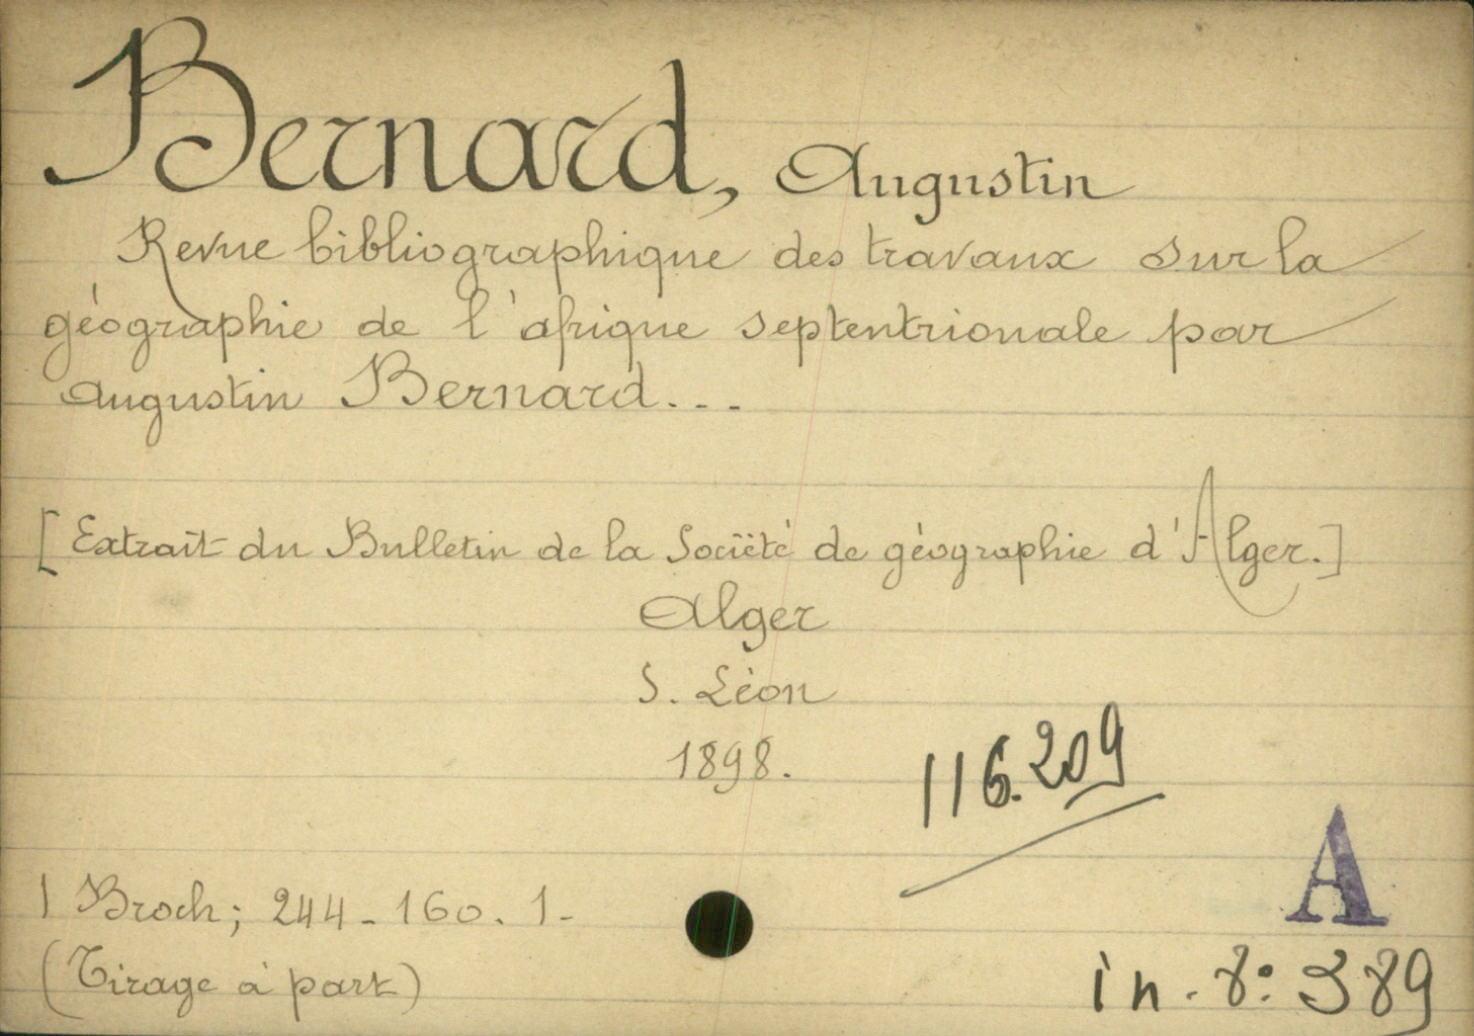 Bernard, Augustin
Revue bibliographique des travaux sur la
géographie de l'afrique septentrionale par
Augustin Bernard...
[Extrait du Bulletin de la Société de géographie d'Alger.]
Alger
S. Léon
1898.
116.209
1 Broch; 244-160.1-
(Tirage à part)
A
in-8º 389